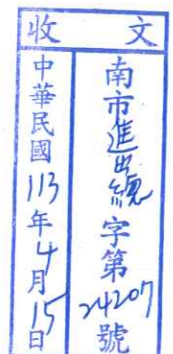 收文
南市進出總字第24207號
中華民國113年4月15日